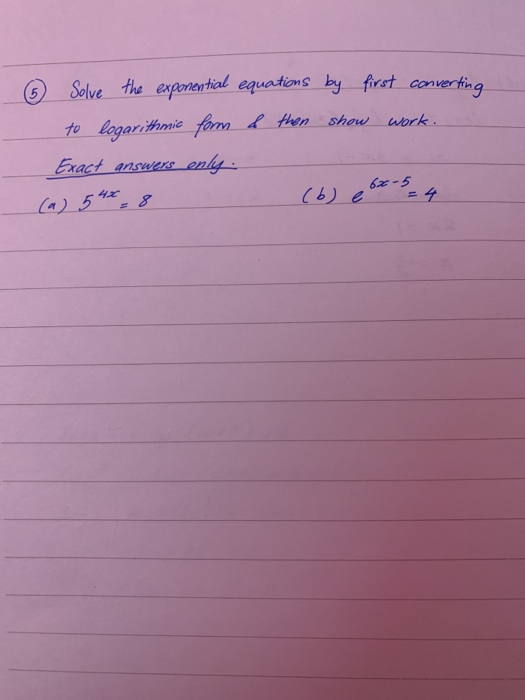 ⑤ Solve the exponential equations by first converting
to logarithmic form & then show work.
Exact answers only.
(a) 5^{4x} = 8 (b) e^{6x-5} = 4